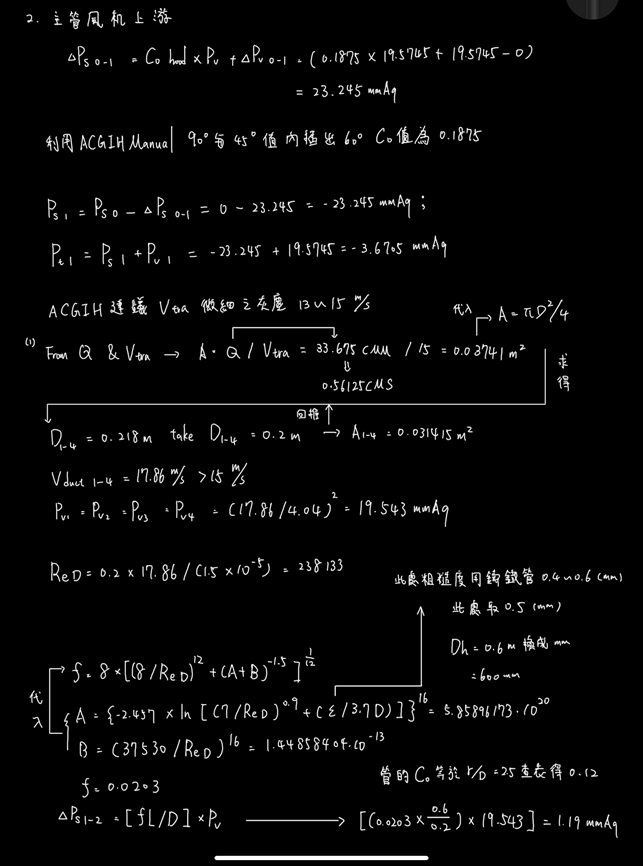 2. 主管風机上游
△Ps 0-1 = Co hood × Pv + △Pv 0-1 = (0.1875 × 19.5745 + 19.5745 - 0)
= 23.245 mmAq
利用 ACGIH Manual 90° 與 45° 值內插出 60° Co值為 0.1875
Ps1 = Ps0 - △Ps 0-1 = 0 - 23.245 = -23.245 mmAq ;
Pt1 = Ps1 + Pv1 = -23.245 + 19.5745 = -3.6705 mmAq
ACGIH 建議 Vtra 微細之灰塵 13~15 m/s
代入 → A = πD²/4
(1) From Q & Vtra → A = Q / Vtra = 33.675 CMM / 15 = 0.03741 m²
0.56125 CMS
求得
回推
D1-4 = 0.218 m take D1-4 = 0.2 m → A1-4 = 0.031415 m²
Vduct 1-4 = 17.86 m/s > 15 m/s
Pv1 = Pv2 = Pv3 = Pv4 = (17.86 / 4.04)² = 19.543 mmAq
ReD = 0.2 × 17.86 / (1.5 × 10⁻⁵) = 238133
此處粗糙度用鑄鐵管 0.4~0.6 (mm)
此處取 0.5 (mm)
Dh = 0.6 m 換成 mm
= 600 mm
代入
f = 8 × [(8/ReD)¹² + (A+B)^-1.5]^1/12
A = {-2.457 × ln [(7/ReD)^0.9 + (ε/3.7D)]}^16 = 5.85896173·10^20
B = (37530/ReD)^16 = 1.44858404·10^-13
f = 0.0203
管的 Co 等於 r/D = 2.5 查表得 0.12
△Ps1-2 = [fL/D] × Pv → [(0.0203 × 0.6/0.2) × 19.543] = 1.19 mmAq